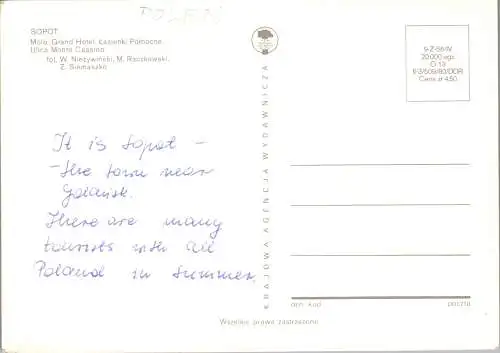 SOPOT
Molo. Grand Hotel. Łazienki Północne.
Ulica Monte Cassino
fot. W. Niezywiński, M. Raczkowski,
Z. Siemaszko
It is Sopot -
- the town near
Gdańsk.
There are many
tourists with all
Poland in summer.
KRAJOWA AGENCJA WYDAWNICZA
20 000 egz.
Cena zł 4,50
Wszelkie prawa zastrzeżone